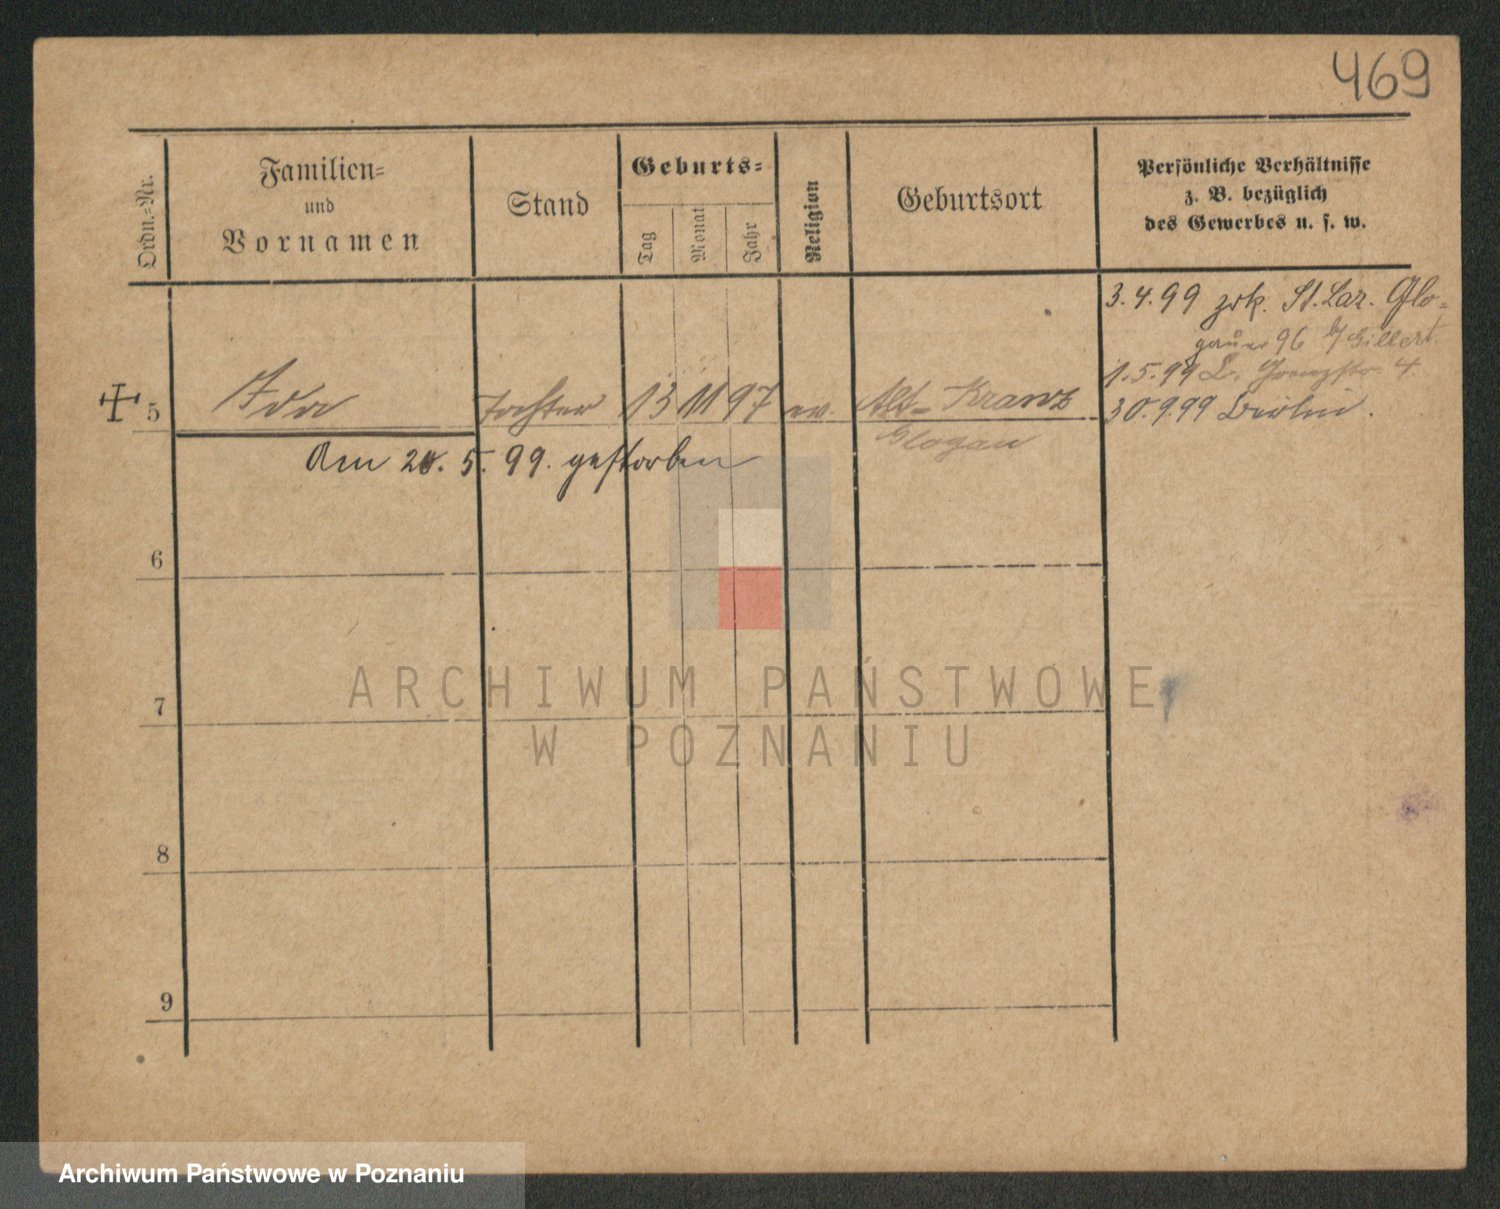 469
Ordn.=Nr.
Familien=
und
Vornamen
Stand
Geburts=
Tag
Monat
Jahr
Religion
Geburtsort
Persönliche Verhältnisse
z. B. bezüglich
des Gewerbes u. s. w.
3.4.99 zrk. St. Laz. Glo=
gauer 96 b/ Gillert
5 Ida Tochter 13 11 97 ev. Alt= Kranz
Glogau
1.5.99 L. 4
30.9.99 Berlin.
Am 20. 5. 99. gestorben
6
7
8
9
ARCHIWUM PAŃSTWOWE
W POZNANIU
Archiwum Państwowe w Poznaniu